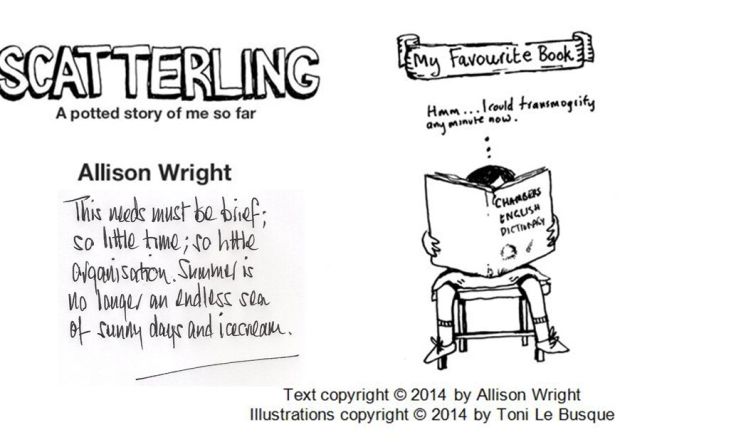 SCATTERLING
A potted story of me so far
Allison Wright
This needs must be brief;
so little time; so little
organisation. Summer is
no longer an endless sea
of sunny days and icecream.
My Favourite Book
Hmm...I could transmogrify
any minute now.
CHAMBERS
ENGLISH
DICTIONARY
Text copyright © 2014 by Allison Wright
Illustrations copyright © 2014 by Toni Le Busque